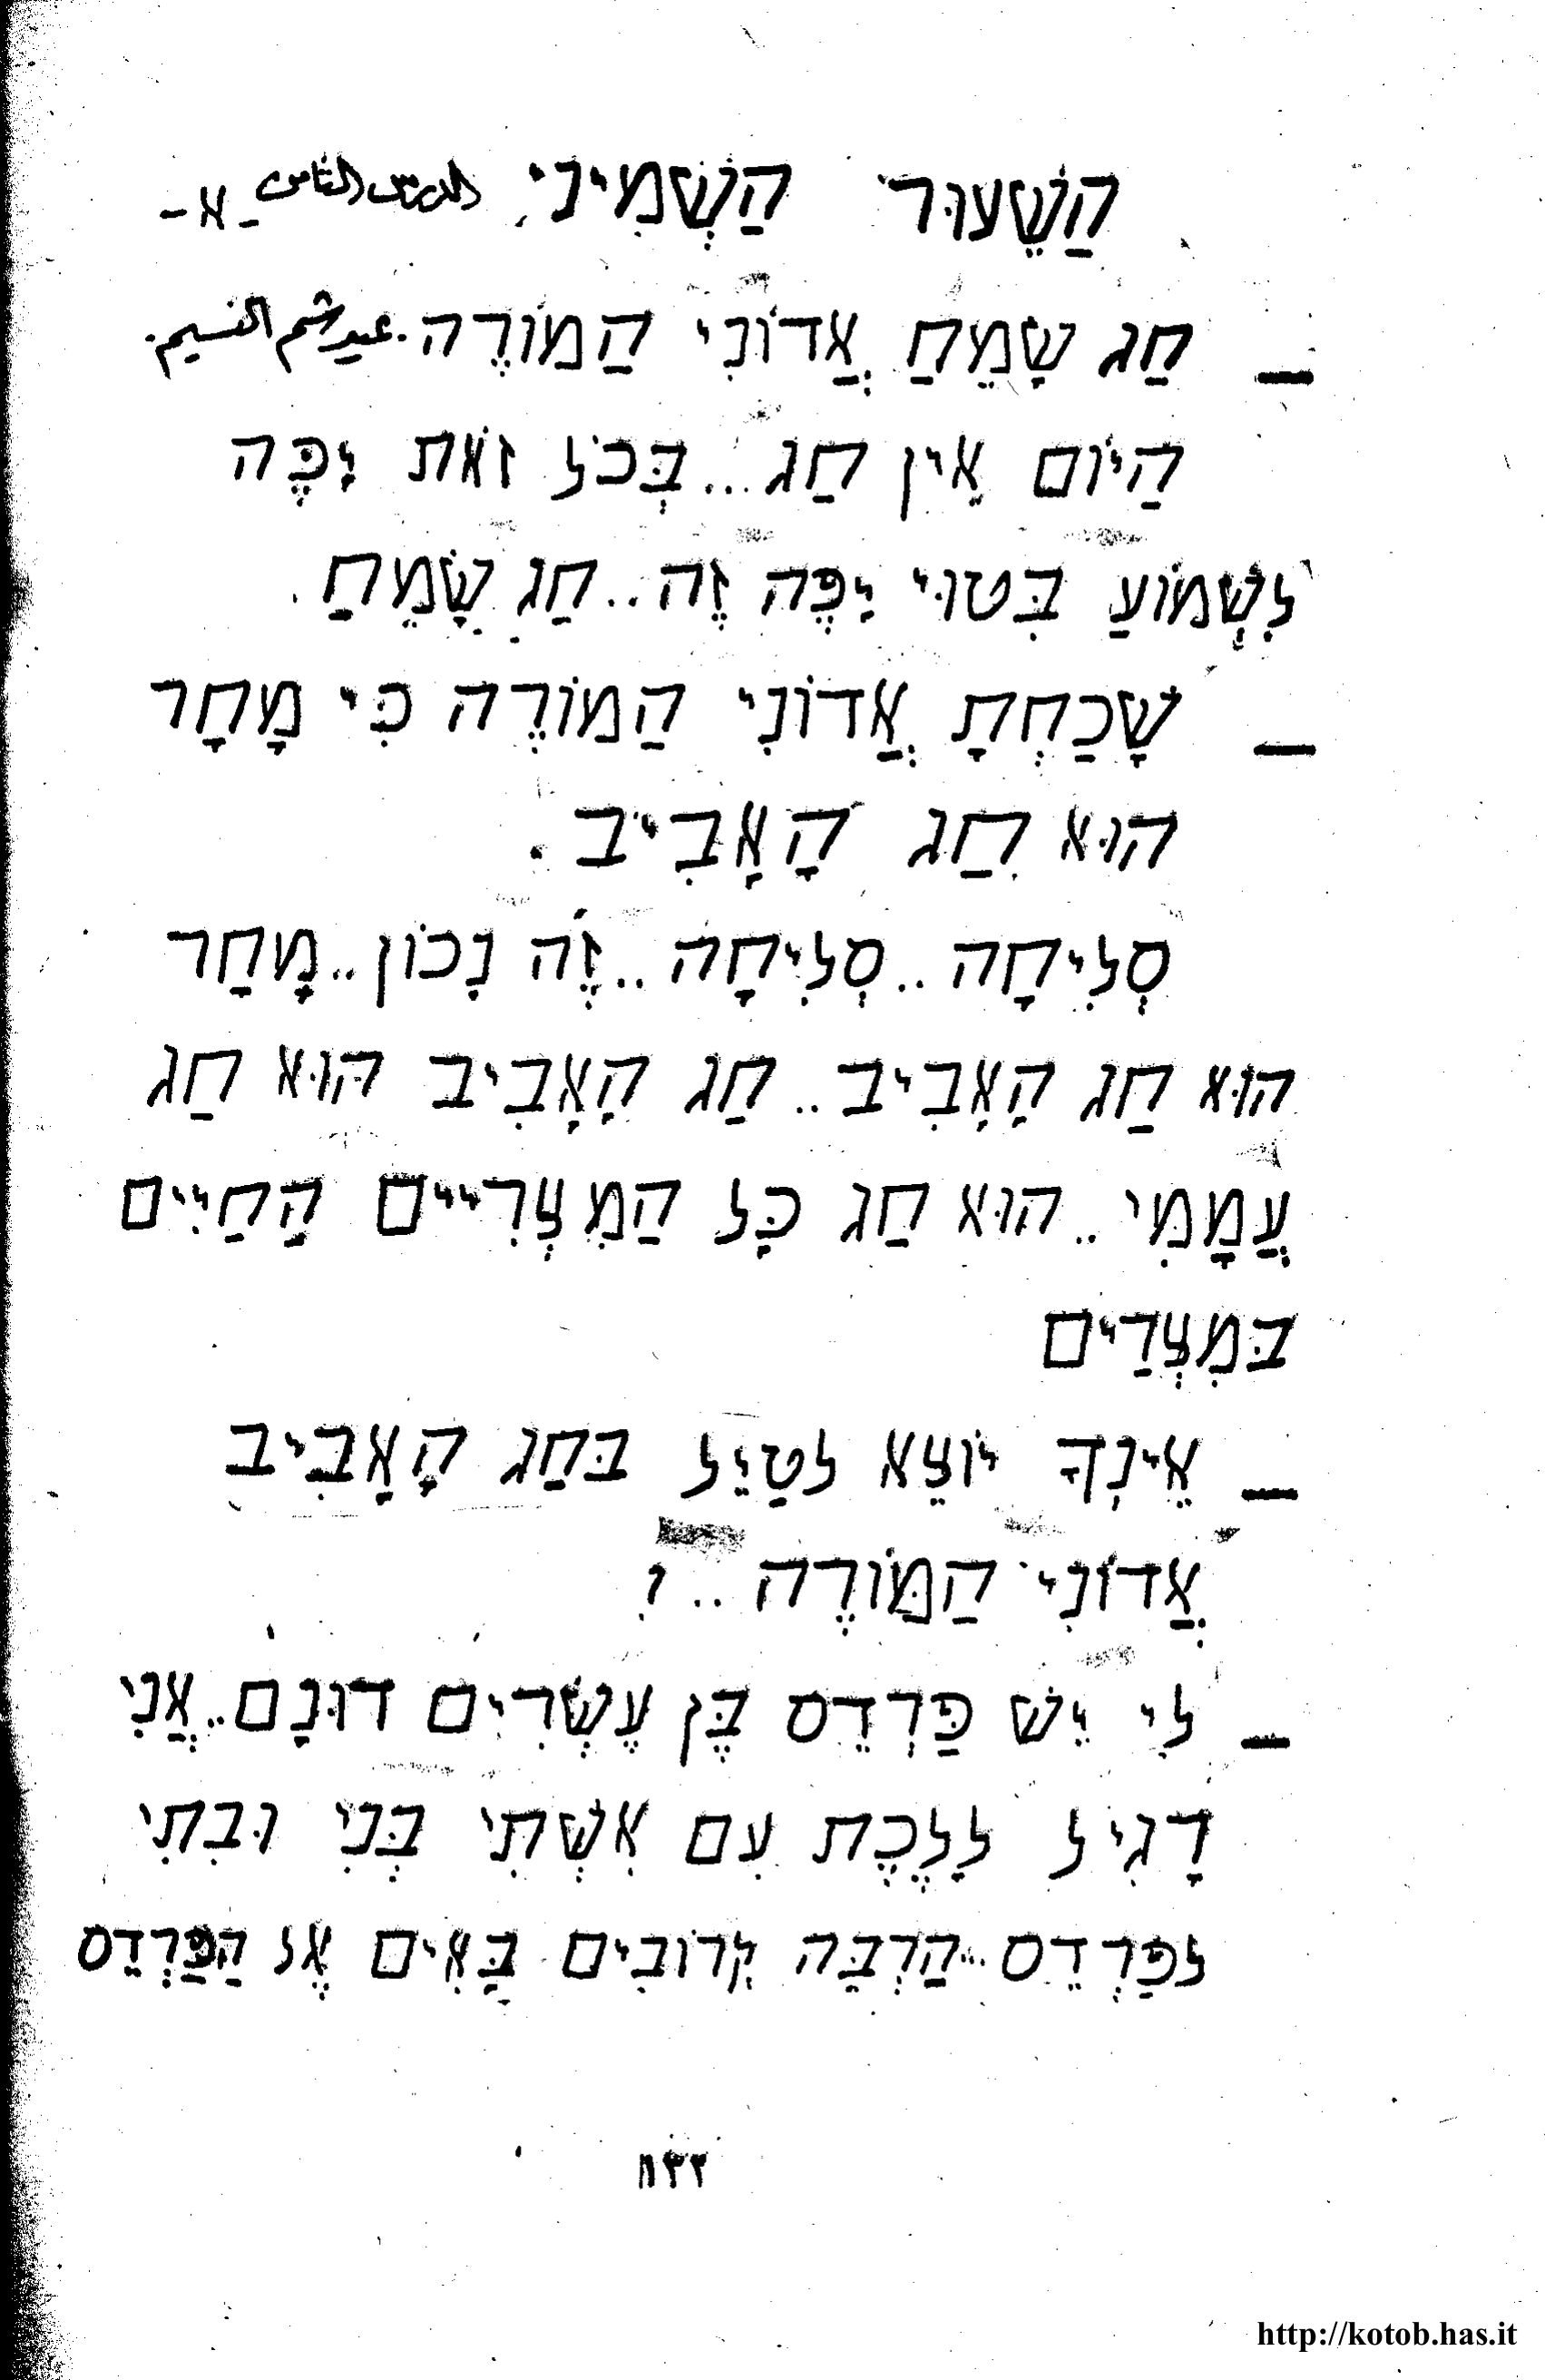 הַשֵּׁעוּר הַשְּׁמִינִי الدرس الثامن -א-
— חַג שָׂמֵחַ אֲדוֹנִי הַמוֹרֶה. عيد شم النسيم.
הַיוֹם אֵין חַג... בְּכֹל זֹאת יָפֶּה
לִשְׁמוֹעַ בִּטוּי יָפֶּה זֶה.. חַג שָׂמֵחַ.
— שָׁכַחְתָ אֲדוֹנִי הַמוֹרֶה כִּי מָחָר
הוּא חַג הָאָבִיב.
סְלִיחָה.. סְלִיחָה.. זֶה נָכוֹן.. מָחַר
הוּא חַג הָאָבִיב.. חַג הָאָבִיב הוּא חַג
עֲמָמִי.. הוּא חַג כָּל הַמִצְרִיים הַחַיִים
בּמִצְרַים
— אֵינְךָ יוֹצֵא לטַיֵל בּחַג הָאָבִיב
אֲדוֹנִי הַמּוֹרֶה..؟
— לִי יֵשׁ פַּרְדֵס בֶּן עֶשְׂרִים דוּנָם.. אֲנִי
רָגִיל לָלֶכֶת עִם אִשְׁתִי בְּנִי וּבִתִי
לפַּרְדֵס.. הַרְבֵּה קְרוֹבִים בָּאִים אֶל הַפַּרְדֵס
١٢٢
http://kotob.has.it